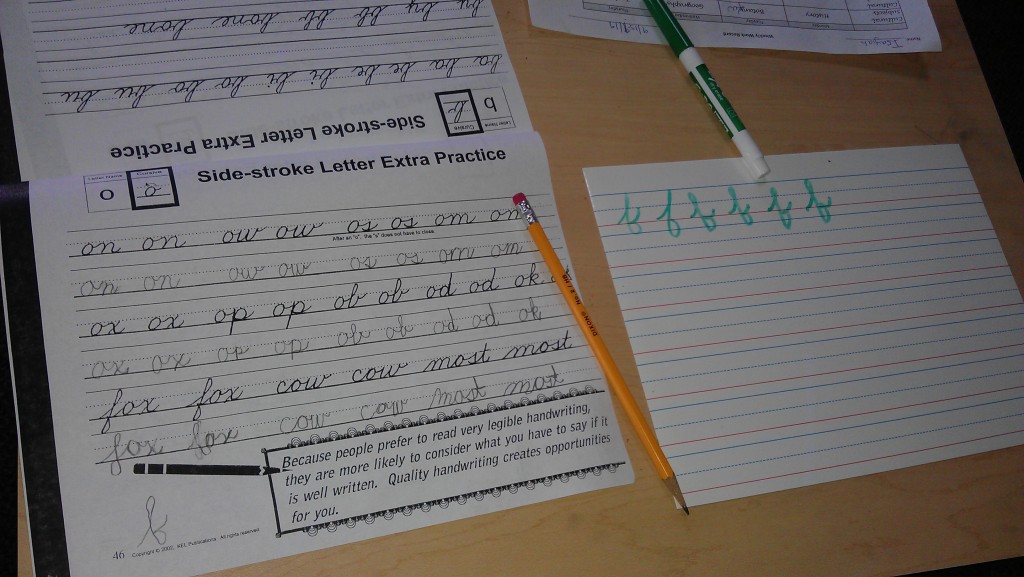 Side-stroke Letter Extra Practice
Letter Name
Cursive
o
o
on on ow ow os os om om
After an "o", the "s" does not have to close.
on on ow ow os os om om
ox ox op op of of od od ok
ox ox op op of of od od ok
fox fox cow cow most most
fox fox cow cow most most
Because people prefer to read very legible handwriting,
they are more likely to consider what you have to say if it
is well written. Quality handwriting creates opportunities
for you.
f
46 Copyright © 2002, KEL Publications All rights reserved
Side-stroke Letter Extra Practice
Letter Name
Cursive
b
b
ba ba be be bi bi bo bo bu bu
by by bb bb bone bone
DIXON
f f f f f f
Weekly Work Record
Name
Geography
Botany
History
Cultural
Subjects